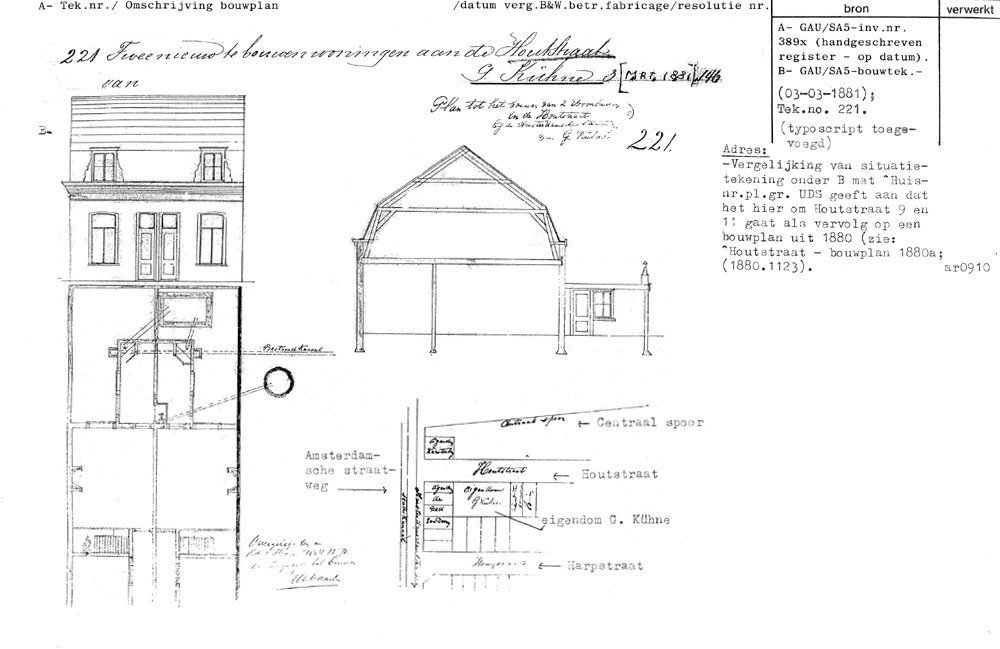 A- Tek.nr./ Omschrijving bouwplan /datum verg.B&W.betr.fabricage/resolutie nr.
bron verwerkt
221 Twee nieuw te bouwen woningen aan de Houtstraat
van G Kühne 3 [MRT 1881] 146
A- GAU/SA5-inv.nr.
389x (handgeschreven
register - op datum).
B- GAU/SA5-bouwtek.-
(03-03-1881);
Tek.no. 221.
(typoscript toege-
voegd)
B-
Plan tot het bouwen van 2
in de Houtstraat
bij de Amsterdamsche
van G. Kühne
221.
Adres:
-Vergelijking van situatie-
tekening onder B met ^Huis-
nr.pl.gr. UDS geeft aan dat
het hier om Houtstraat 9 en
11 gaat als vervolg op een
bouwplan uit 1880 (zie:
^Houtstraat - bouwplan 1880a;
(1880.1123).
ar0910
Centraal spoor
Centraal spoor
Amsterdam-
sche straat-
weg
Houtstraat
Houtstraat
eigendom
G Kühne
eigendom G. Kühne
Harpstraat